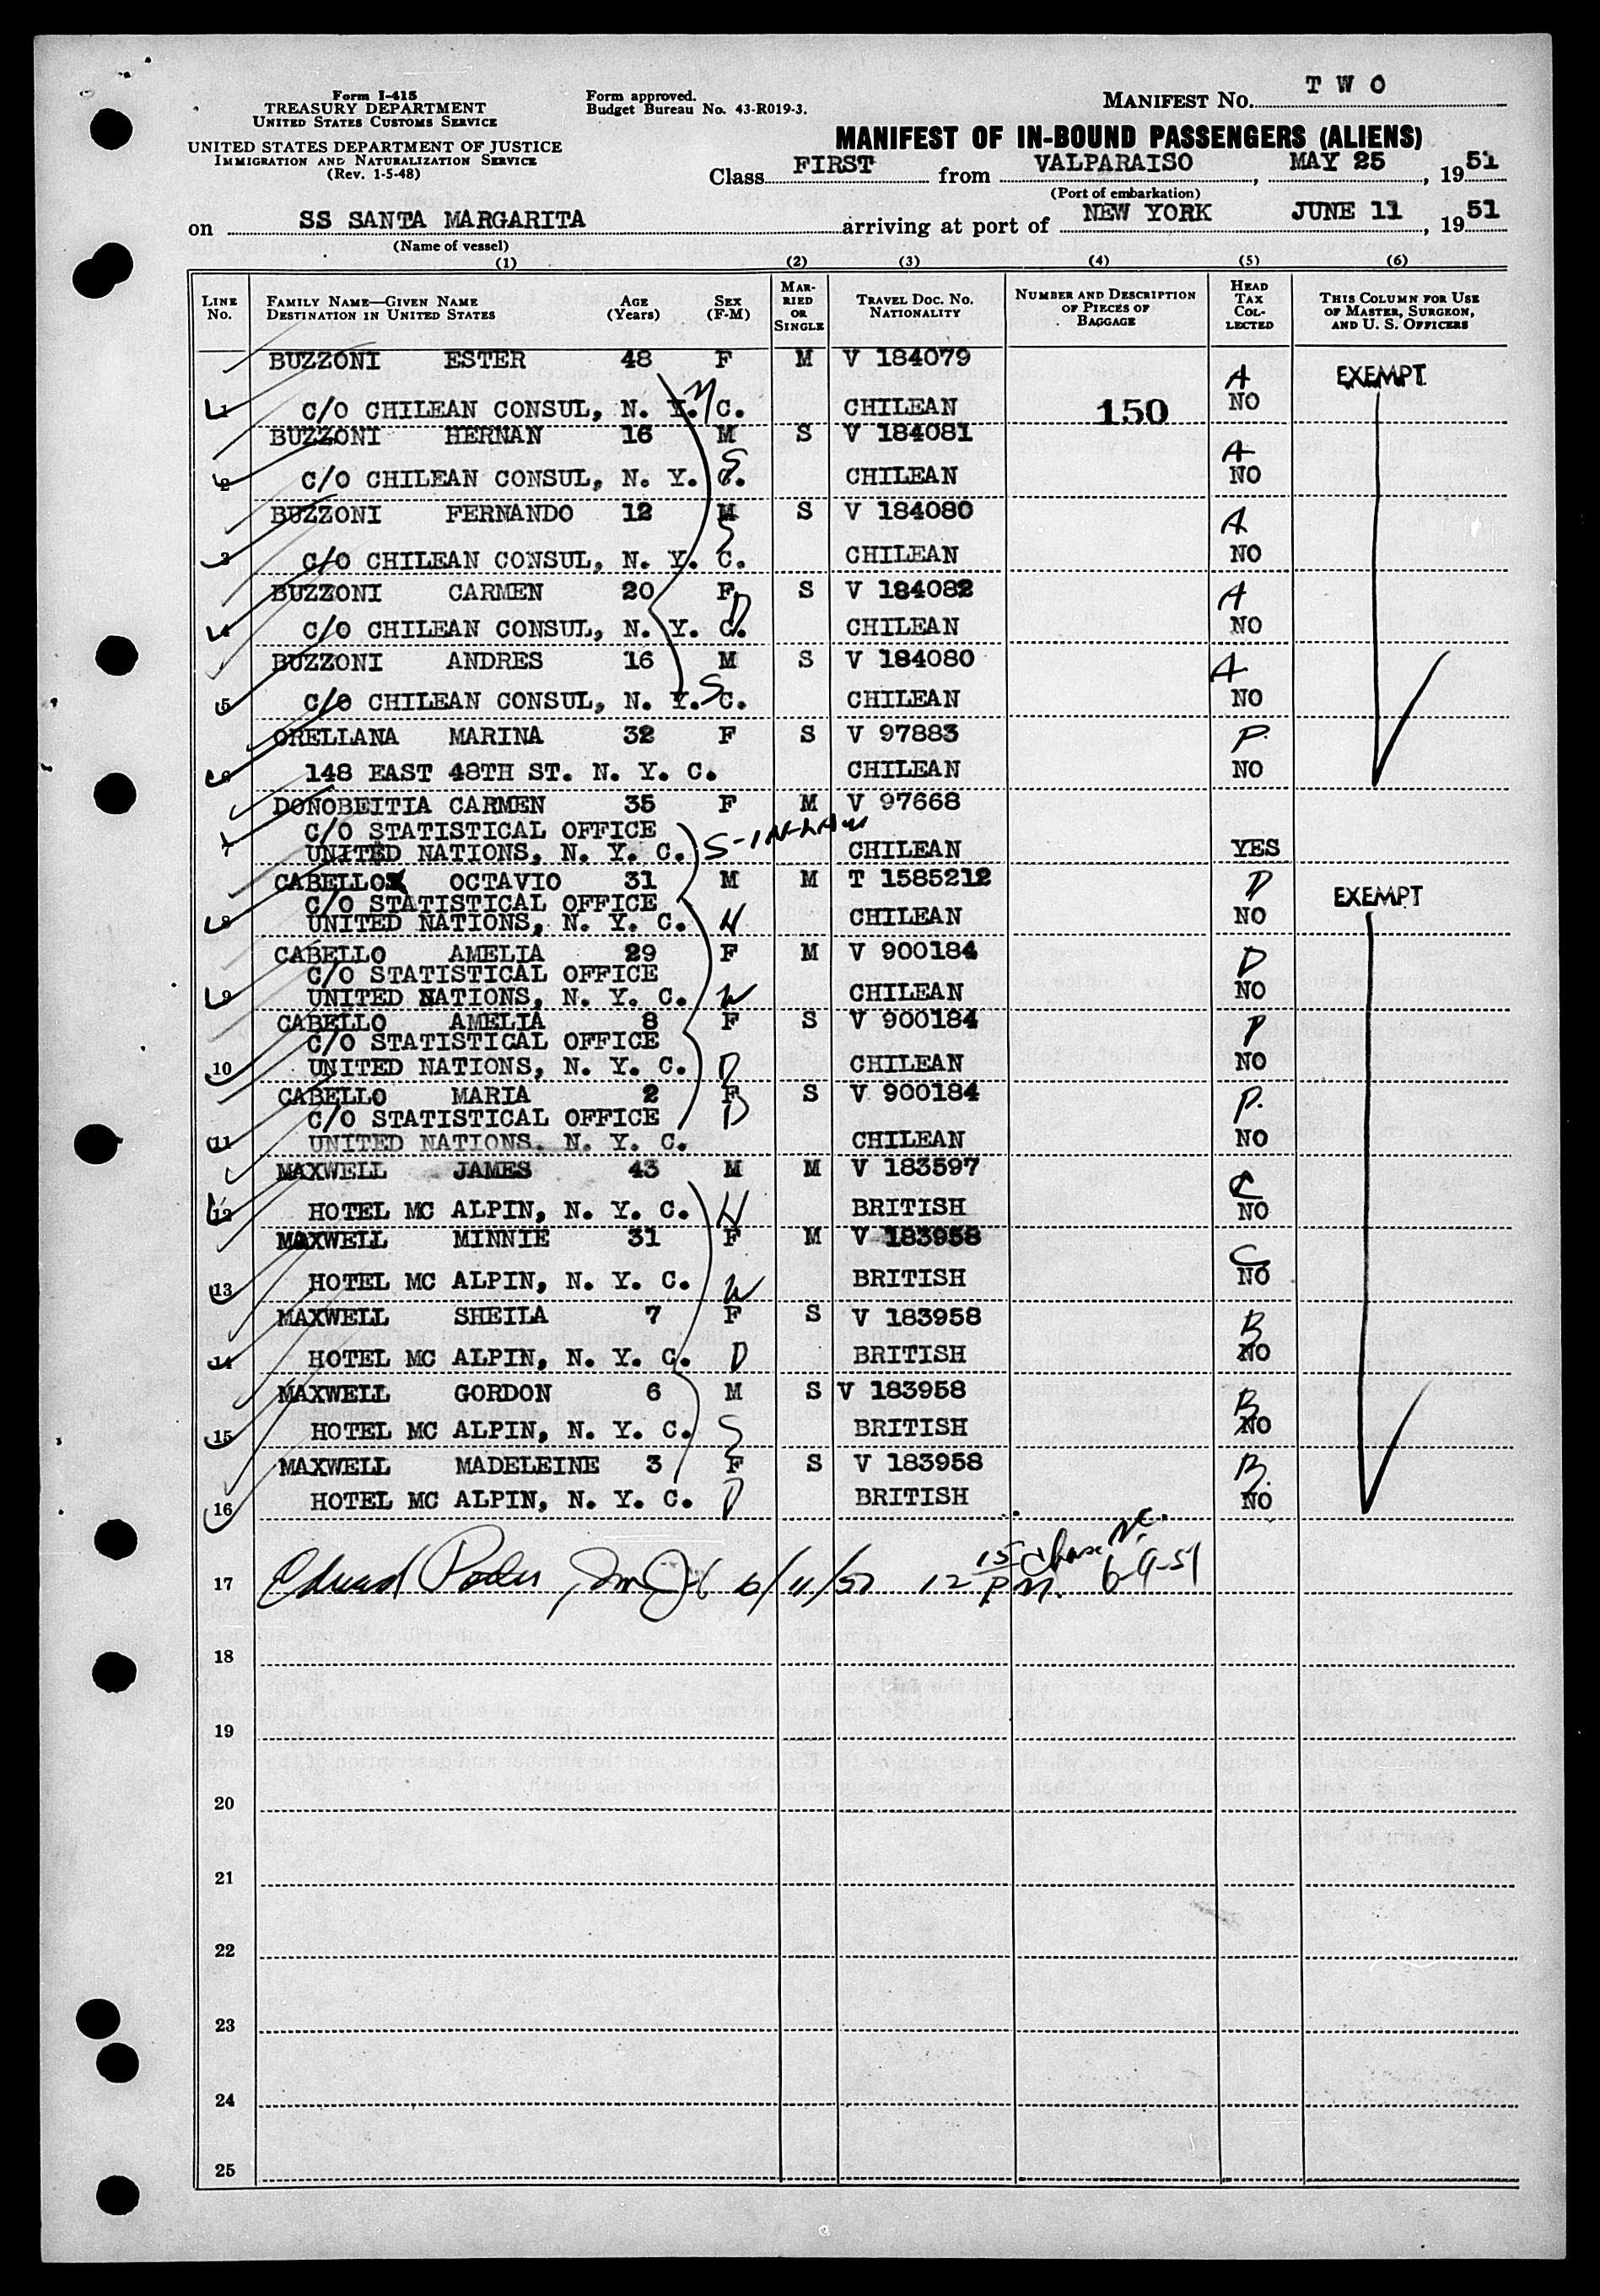 Form I-415
TREASURY DEPARTMENT
UNITED STATES CUSTOMS SERVICE
UNITED STATES DEPARTMENT OF JUSTICE
IMMIGRATION AND NATURALIZATION SERVICE
(Rev. 1-5-48)
Form approved.
Budget Bureau No. 43-R019-3.
MANIFEST NO. TWO
MANIFEST OF IN-BOUND PASSENGERS (ALIENS)
Class FIRST from VALPARAISO, MAY 25, 1951
(Port of embarkation)
on SS SANTA MARGARITA arriving at port of NEW YORK JUNE 11, 1951
(Name of vessel)
(1) (2) (3) (4) (5) (6)
LINE NO. FAMILY NAME—GIVEN NAME DESTINATION IN UNITED STATES AGE (YEARS) SEX (F-M) MARRIED OR SINGLE TRAVEL DOC. NO. NATIONALITY NUMBER AND DESCRIPTION OF PIECES OF BAGGAGE HEAD TAX COLLECTED THIS COLUMN FOR USE OF MASTER, SURGEON, AND U. S. OFFICERS
BUZZONI ESTER 48 F M V 184079 A EXEMPT
1 C/O CHILEAN CONSUL, N. Y. C. M CHILEAN 150 NO
BUZZONI HERNAN 16 M S V 184081 A
2 C/O CHILEAN CONSUL, N. Y. C. S CHILEAN NO
BUZZONI FERNANDO 12 M S V 184080 A
3 C/O CHILEAN CONSUL, N. Y. C. S CHILEAN NO
BUZZONI CARMEN 20 F S V 184082 A
4 C/O CHILEAN CONSUL, N. Y. C. D CHILEAN NO
BUZZONI ANDRES 16 M S V 184080 A
5 C/O CHILEAN CONSUL, N. Y. C. S CHILEAN NO
ORELLANA MARINA 32 F S V 97883 P.
6 148 EAST 48TH ST. N. Y. C. CHILEAN NO
DONOBEITIA CARMEN 35 F M V 97668
C/O STATISTICAL OFFICE
7 UNITED NATIONS, N. Y. C. S-IN-LAW CHILEAN YES
CABELLO OCTAVIO 31 M M T 1585212 P EXEMPT
C/O STATISTICAL OFFICE
8 UNITED NATIONS, N. Y. C. H CHILEAN NO
CABELLO AMELIA 29 F M V 900184 D
C/O STATISTICAL OFFICE
9 UNITED NATIONS, N. Y. C. W CHILEAN NO
CABELLO AMELIA 8 F S V 900184 P
C/O STATISTICAL OFFICE
10 UNITED NATIONS, N. Y. C. D CHILEAN NO
CABELLO MARIA 2 F S V 900184 P.
C/O STATISTICAL OFFICE D
11 UNITED NATIONS. N. Y. C. CHILEAN NO
MAXWELL JAMES 43 M M V 183597 C
12 HOTEL MC ALPIN, N. Y. C. H BRITISH NO
MAXWELL MINNIE 31 F M V 183958 C
13 HOTEL MC ALPIN, N. Y. C. W BRITISH NO
MAXWELL SHEILA 7 F S V 183958 B
14 HOTEL MC ALPIN, N. Y. C. D BRITISH NO
MAXWELL GORDON 6 M S V 183958 B
15 HOTEL MC ALPIN, N. Y. C. S BRITISH NO
MAXWELL MADELEINE 3 F S V 183958 B.
16 HOTEL MC ALPIN, N. Y. C. D BRITISH NO
17 6/11/51 12 15 P.M. 6-9-51
18
19
20
21
22
23
24
25